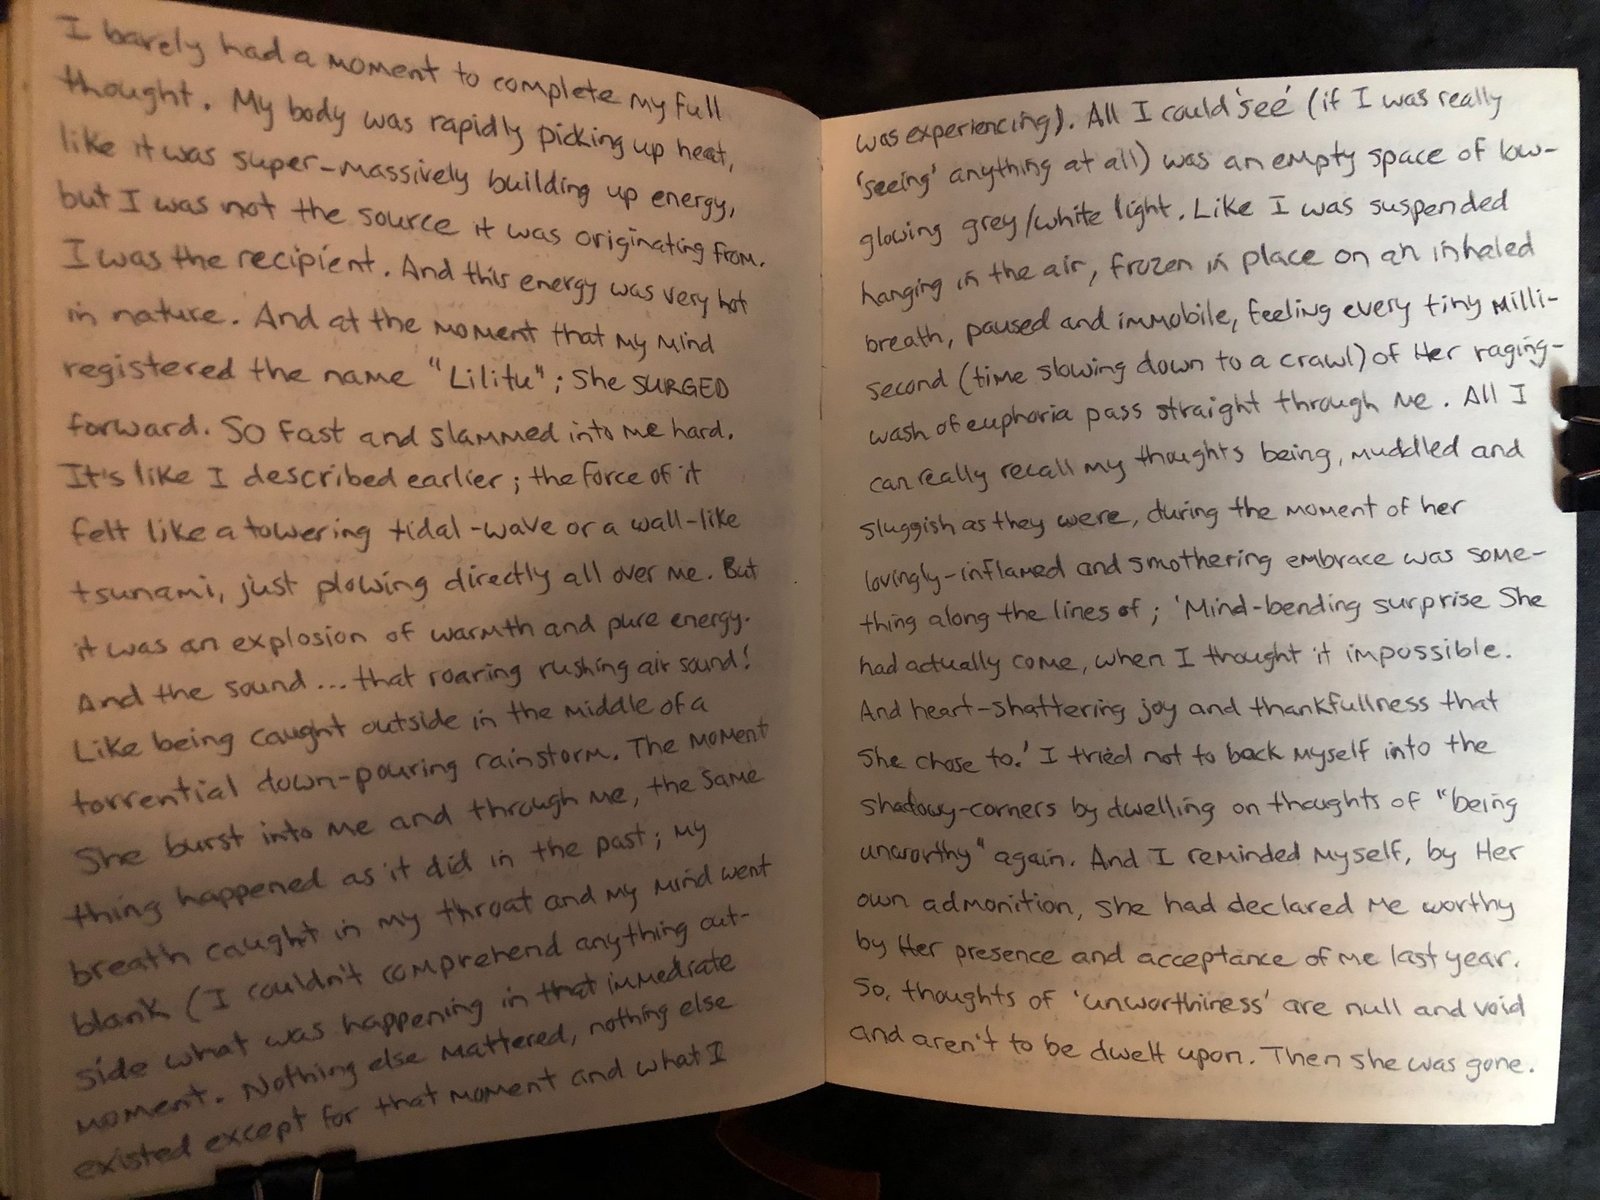 I barely had a moment to complete my full
thought. My body was rapidly picking up heat,
like it was super-massively building up energy,
but I was not the source it was originating from.
I was the recipient. And this energy was very hot
in nature. And at the moment that my mind
registered the name "Lilitu"; She SURGED
forward. SO fast and slammed into me hard.
It's like I described earlier; the force of it
felt like a towering tidal-wave or a wall-like
tsunami, just plowing directly all over me. But
it was an explosion of warmth and pure energy.
And the sound... that roaring rushing air sound!
Like being caught outside in the middle of a
torrential down-pouring rainstorm. The moment
She burst into me and through me, the same
thing happened as it did in the past; my
breath caught in my throat and my mind went
blank (I couldn't comprehend anything out-
side what was happening in that immediate
moment. Nothing else mattered, nothing else
existed except for that moment and what I
was experiencing). All I could 'see' (if I was really
'seeing' anything at all) was an empty space of low-
glowing grey/white light. Like I was suspended
hanging in the air, frozen in place on an inhaled
breath, paused and immobile, feeling every tiny milli-
second (time slowing down to a crawl) of Her raging-
wash of euphoria pass straight through me. All I
can really recall my thoughts being, muddled and
sluggish as they were, during the moment of her
lovingly-inflamed and smothering embrace was some-
thing along the lines of; 'Mind-bending surprise She
had actually come, when I thought it impossible.
And heart-shattering joy and thankfullness that
She chose to.' I tried not to back myself into the
shadowy-corners by dwelling on thoughts of "being
unworthy" again. And I reminded myself, by Her
own admonition, she had declared me worthy
by Her presence and acceptance of me last year.
So, thoughts of 'unworthiness' are null and void
and aren't to be dwelt upon. Then she was gone.